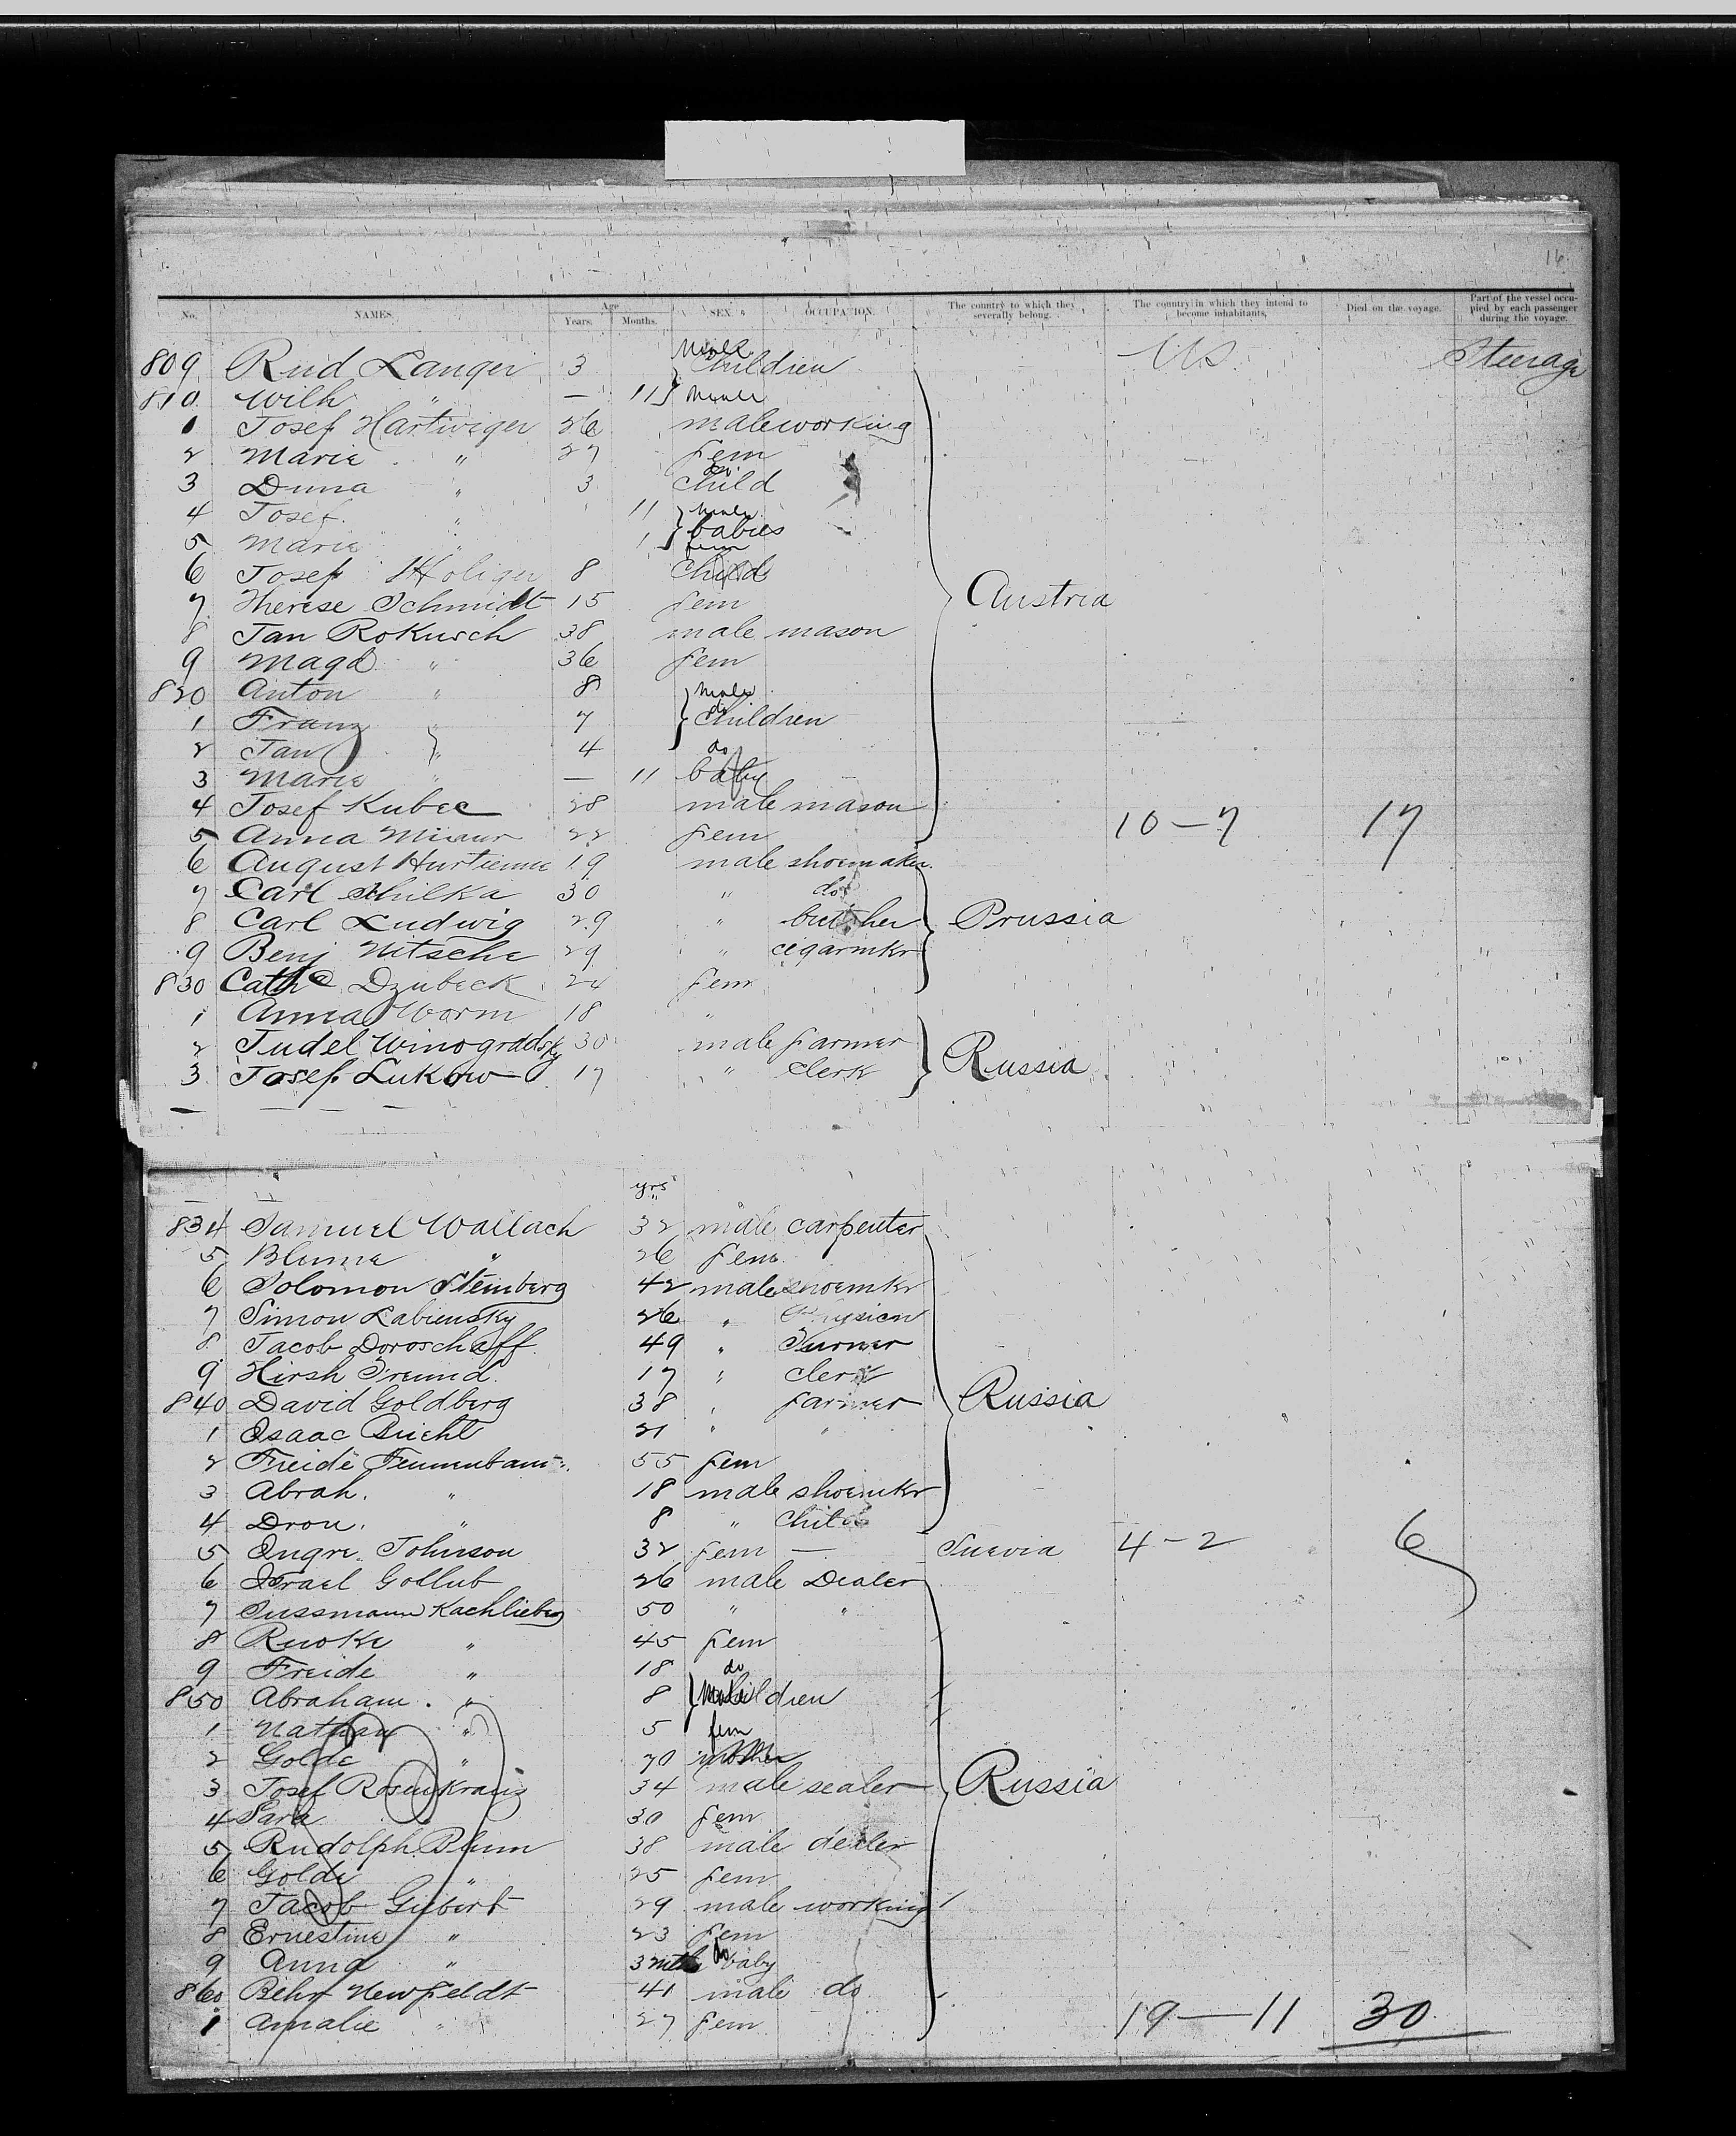 16
No. NAMES. Age Years. Months. SEX. OCCUPATION. The country to which they severally belong. The country in which they intend to become inhabitants. Died on the voyage. Part of the vessel occupied by each passenger during the voyage.
809 Rud Langer 3 Male Children US Steerage
810 Wilh " — 11 Male
1 Josef Hartwiger 26 male working
2 Marie " 27 fem
3 Duna " 3 do. child
4 Josef " 11 Male babies
5 Marie " 1 fem
6 Josef Holiger 8 child
7 Therese Schmidt 15 fem Austria
8 Jan Rokusch 38 male mason
9 Magd " 36 fem
820 Anton " 8 Male
1 Franz " 7 do children
2 Jan " 4 do
3 Marie " — 11 baby
4 Josef Kubec 28 male mason 10–7 17
5 Anna 22 fem
6 August Hurtienne 19 male shoemaker
7 Carl 30 " do
8 Carl Ludwig 29 " butcher Prussia
9 Benj Nitsche 29 " cigarmkr
830 Cath Dzubeck 24 fem
1 Anna Worm 18 "
2 Judel Winogradsky 30 male farmer
3 Josef Lukow 17 " clerk Russia
yrs
834 Samuel Wallach 32 male carpenter
5 Blume " 26 fem
6 Solomon Steinberg 42 male shoemkr
7 Simon Labiensky 26 "
8 Jacob Doroschaff 49 " Turner
9 Hirsh Freund 17 " clerk
840 David Goldberg 38 " farmer Russia
1 Isaac 21 " "
2 Freide 55 fem
3 Abrah. " 18 male shoemkr
4 Dron. " 8 " child
5 Ingre Johnson 32 fem — Suevia 4–2 6
6 Israel Gollub 26 male Dealer
7 Sussmann Kachlieberg 50 " "
8 Rwoke " 45 fem
9 Freide " 18 do
850 Abraham " 8 children
1 Nathan " 5
2 Golde " 70 fem mother
3 Josef Rosenkranz 34 male sealer Russia
4 Sara 30 fem
5 Rudolph Blum 38 male dealer
6 Golde " 25 fem
7 Jacob Gubert 29 male working
8 Ernestine " 23 fem
9 Anna " 3 mth do baby
860 Behr Newfeldt 41 male do
1 Amalie " 27 fem 19–11 30